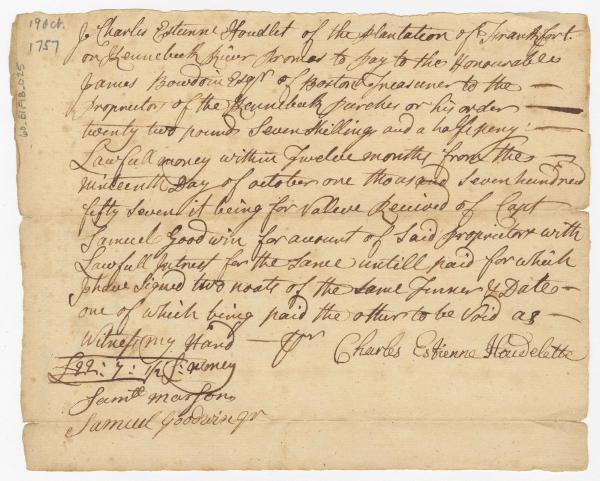 19 Oct.
1757
60.61F1B.025
I Charles Estienne Houdlet of the plantation of Frankfort
on Kennebeck River Promas to pay to the Honourable
James Bowdoin Esqr of Boston Treasurer to the
Proprietors of the Kennebeck purches or his order
twenty two pounds Seven Shillings and a half peny:
Lawfull money within Twelve months from the
nineteenth Day of october one thousand seven hundred
fifty seven it being for Valeve Recived of Capt
Samuel Goodwin for account of Said Proprietors with
Lawfull Intrest for the Same untill paid for which
I have Signed two noats of the same Tenner & Date
one of which being paid the other to be Void as
Witness my Hand
Charles Estienne Houdelette
£22:7:1/2 L: money
Samll Marson
Samuel Goodwin Jr